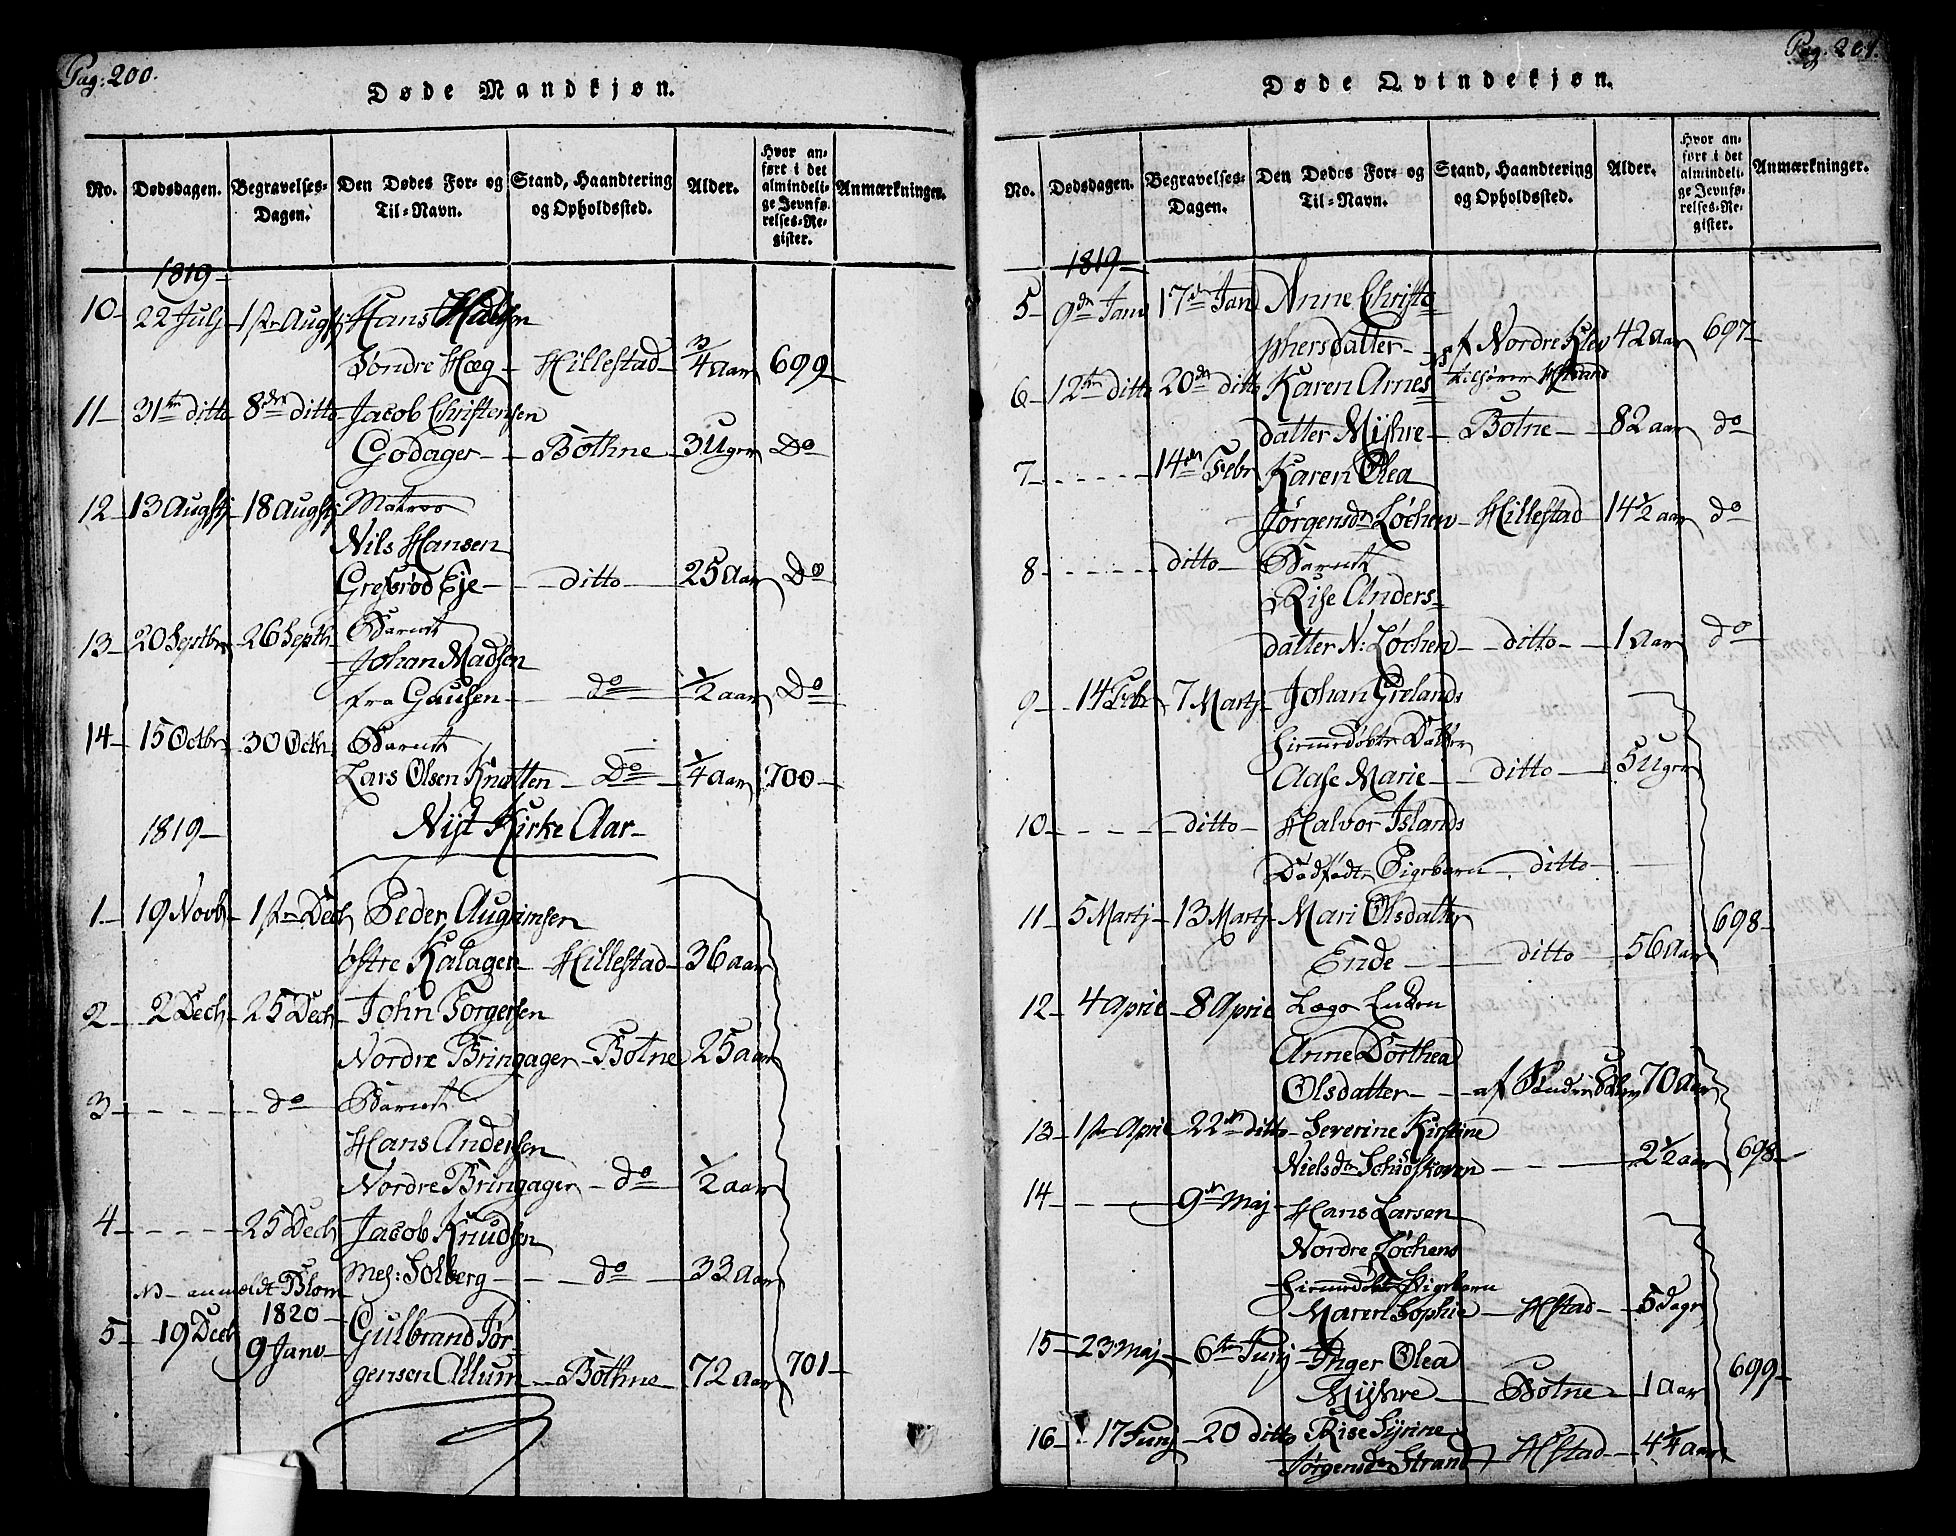 Pag: 200.
Døde Mandkjøn.
No. Dødsdagen. Begravelses-Dagen. Den Dødes For- og Til-Navn. Stand, Haandtering og Opholdssted. Alder. Hvor anført i det almindelige Jevnførelses-Register. Anmærkninger.
1819
10 22 July 1ste Augstj Hans
Søndre Hæg Hillestad 3/4 aar 699
11 31te ditto 8de ditto Jacob Christensen
Godager Bothne 3 Uger Do
12 13 Augstj 18 Augstj Matros
Nils Hansen
Gresrød Eje ditto 25 Aar Do
13 20 Septbr 26 Septb Barnet
Johan Madsen
fra Gausen do 1/2 aar Do
14 15 Octbr 30 Octb Barnet
Lars Olsen Knatten Do 1/4 Aar 700
1819 Nyt Kirke Aar
1 19 Novb 1ste Decb Peder Augrimsen
østre Kalagen Hillestad 36 aar
2 2 Decb 25 Decb John Torgersen
Nordre Bringager Botne 25 aar
3 do Barnet
Hans Andersen
Nordre Bringager do 1/2 aar
4 25 Decb Jacob Knudsen
Mes: Solberg do 33 Aar
NB anmeldt Blom
1820
5 19 Decb 9 Janv Gulbrand Jør
gensen Allum Bothne 72 Aar 701
Pag. 201.
Døde Qvindekjøn.
No. Dødsdagen. Begravelses-Dagen. Den Dødes For- og Til-Navn. Stand, Haandtering og Opholdssted. Alder. Hvor anført i det almindelige Jevnførelses-Register. Anmærkninger.
1819
5 9de Janv 17de Jan Anne Christo
phersdatter af Nordre Klev 42 aar 697
6 12te ditto 20de ditto Karen Arnes
datter Myhre Botne 82 aar do
7 14de Febr Karen Olea
Jørgensdr Løchen Hillestad 14 1/2 aar do
8 ditto Barnet
Rise Anders
datter N: Løchen ditto 1 Aar do
9 14 Febr 7 Martj Johan Grelands
hiemmedøbte Datter
Aase Marie ditto 5 Uger
10 ditto Halvor Islands
Dødfødte Pigebarn ditto
11 5 Martj 13 Martj Mari Olsdatter
Ende ditto 56 Aar 698
12 4 April 8 April Lægs Enken
Anne Dorthea
Olsdatter af 70 Aar
13 1ste April 22de ditto Severine Kirstine
Nielsdr Schuoskoven 2 1/2 aar 698
14 9de Maj Hans Larsen
Nordre Løchens
hiemmedøbte Pigebarn
Maren Sophie Hstad 5 dage
15 23 Maj 6te Junj Inger Olea
Myhre Botne 1 Aar 699
16 17 Junj 20 ditto Rise Syrine
Jørgensdr Strand Hstad 4 1/4 aar